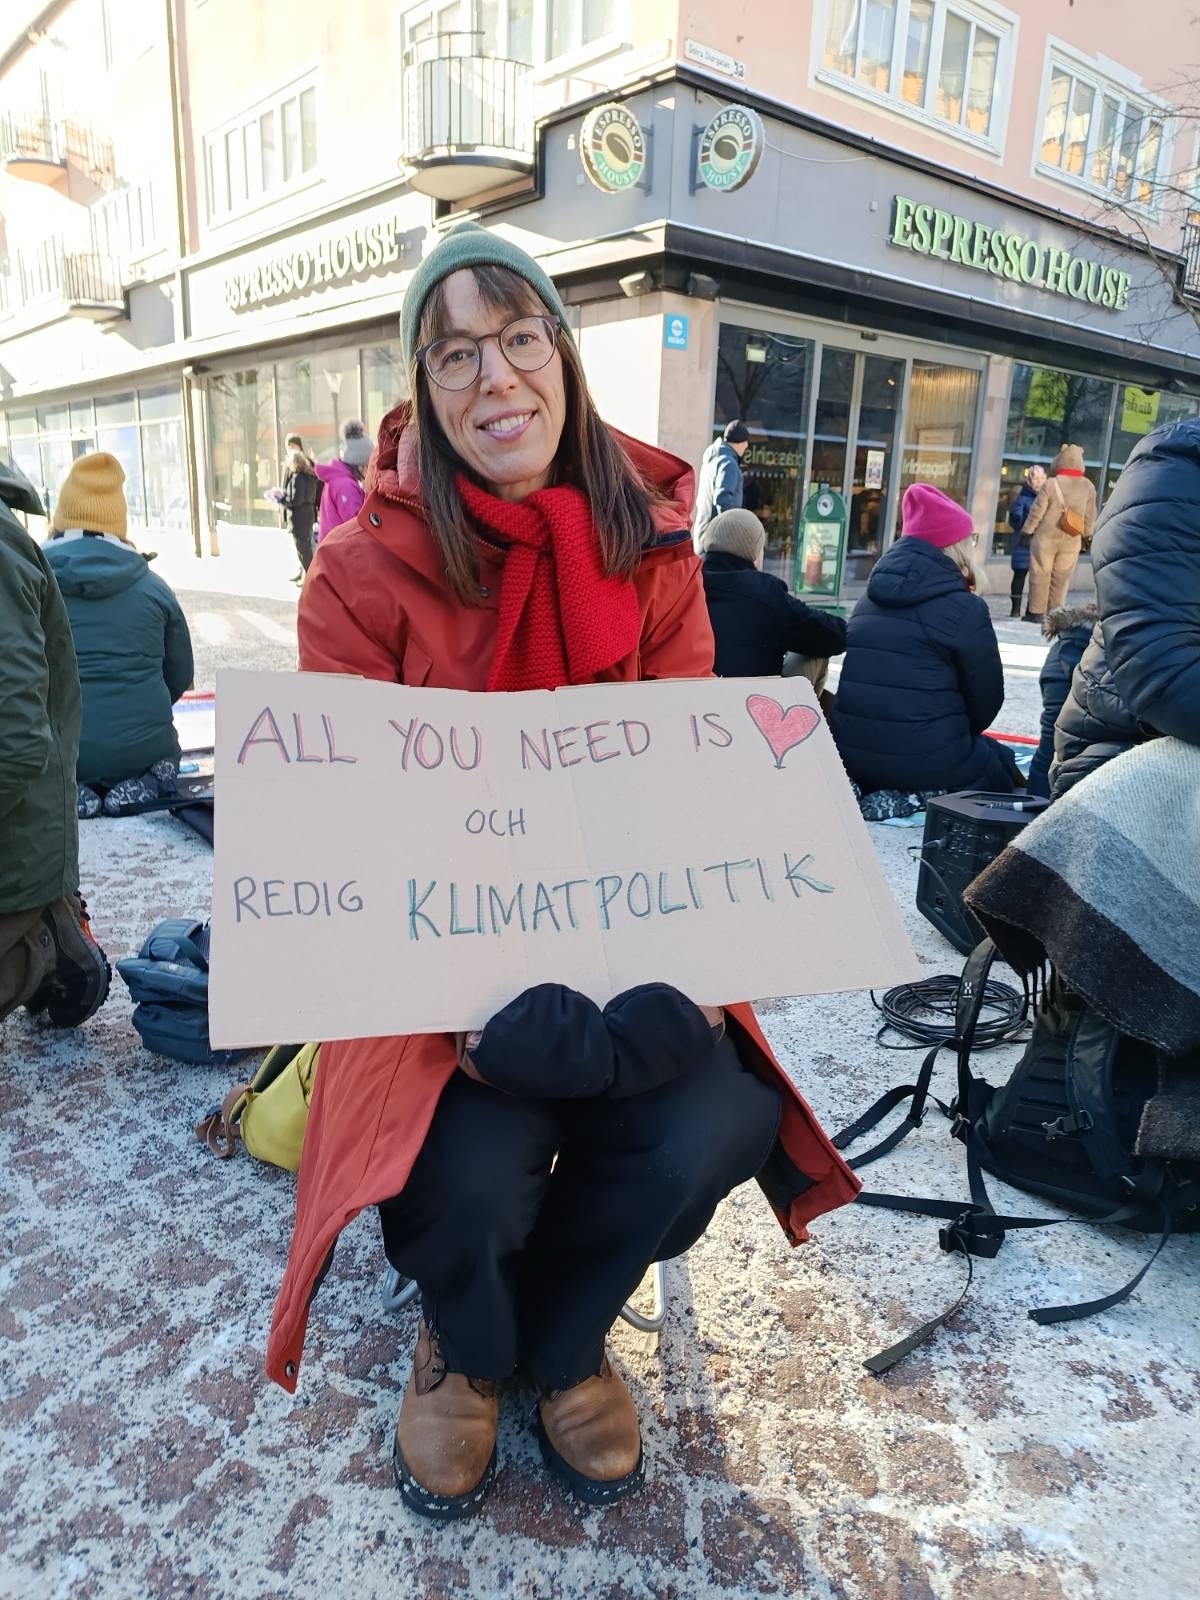 Östra Storgatan 32
ESPRESSO HOUSE
ESPRESSO HOUSE
ESPRESSO HOUSE
ESPRESSO HOUSE
ALL YOU NEED IS
OCH
REDIG KLIMATPOLITIK